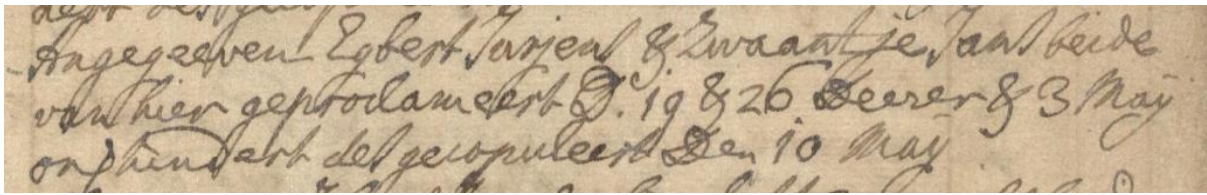 Angegeeven Egbert Jurjens & Zwaantje Jans beide
van hier geproclameert D. 19 & 26 Deeser & 3 Maÿ
onghindert des gecopuleert Den 10 Maÿ